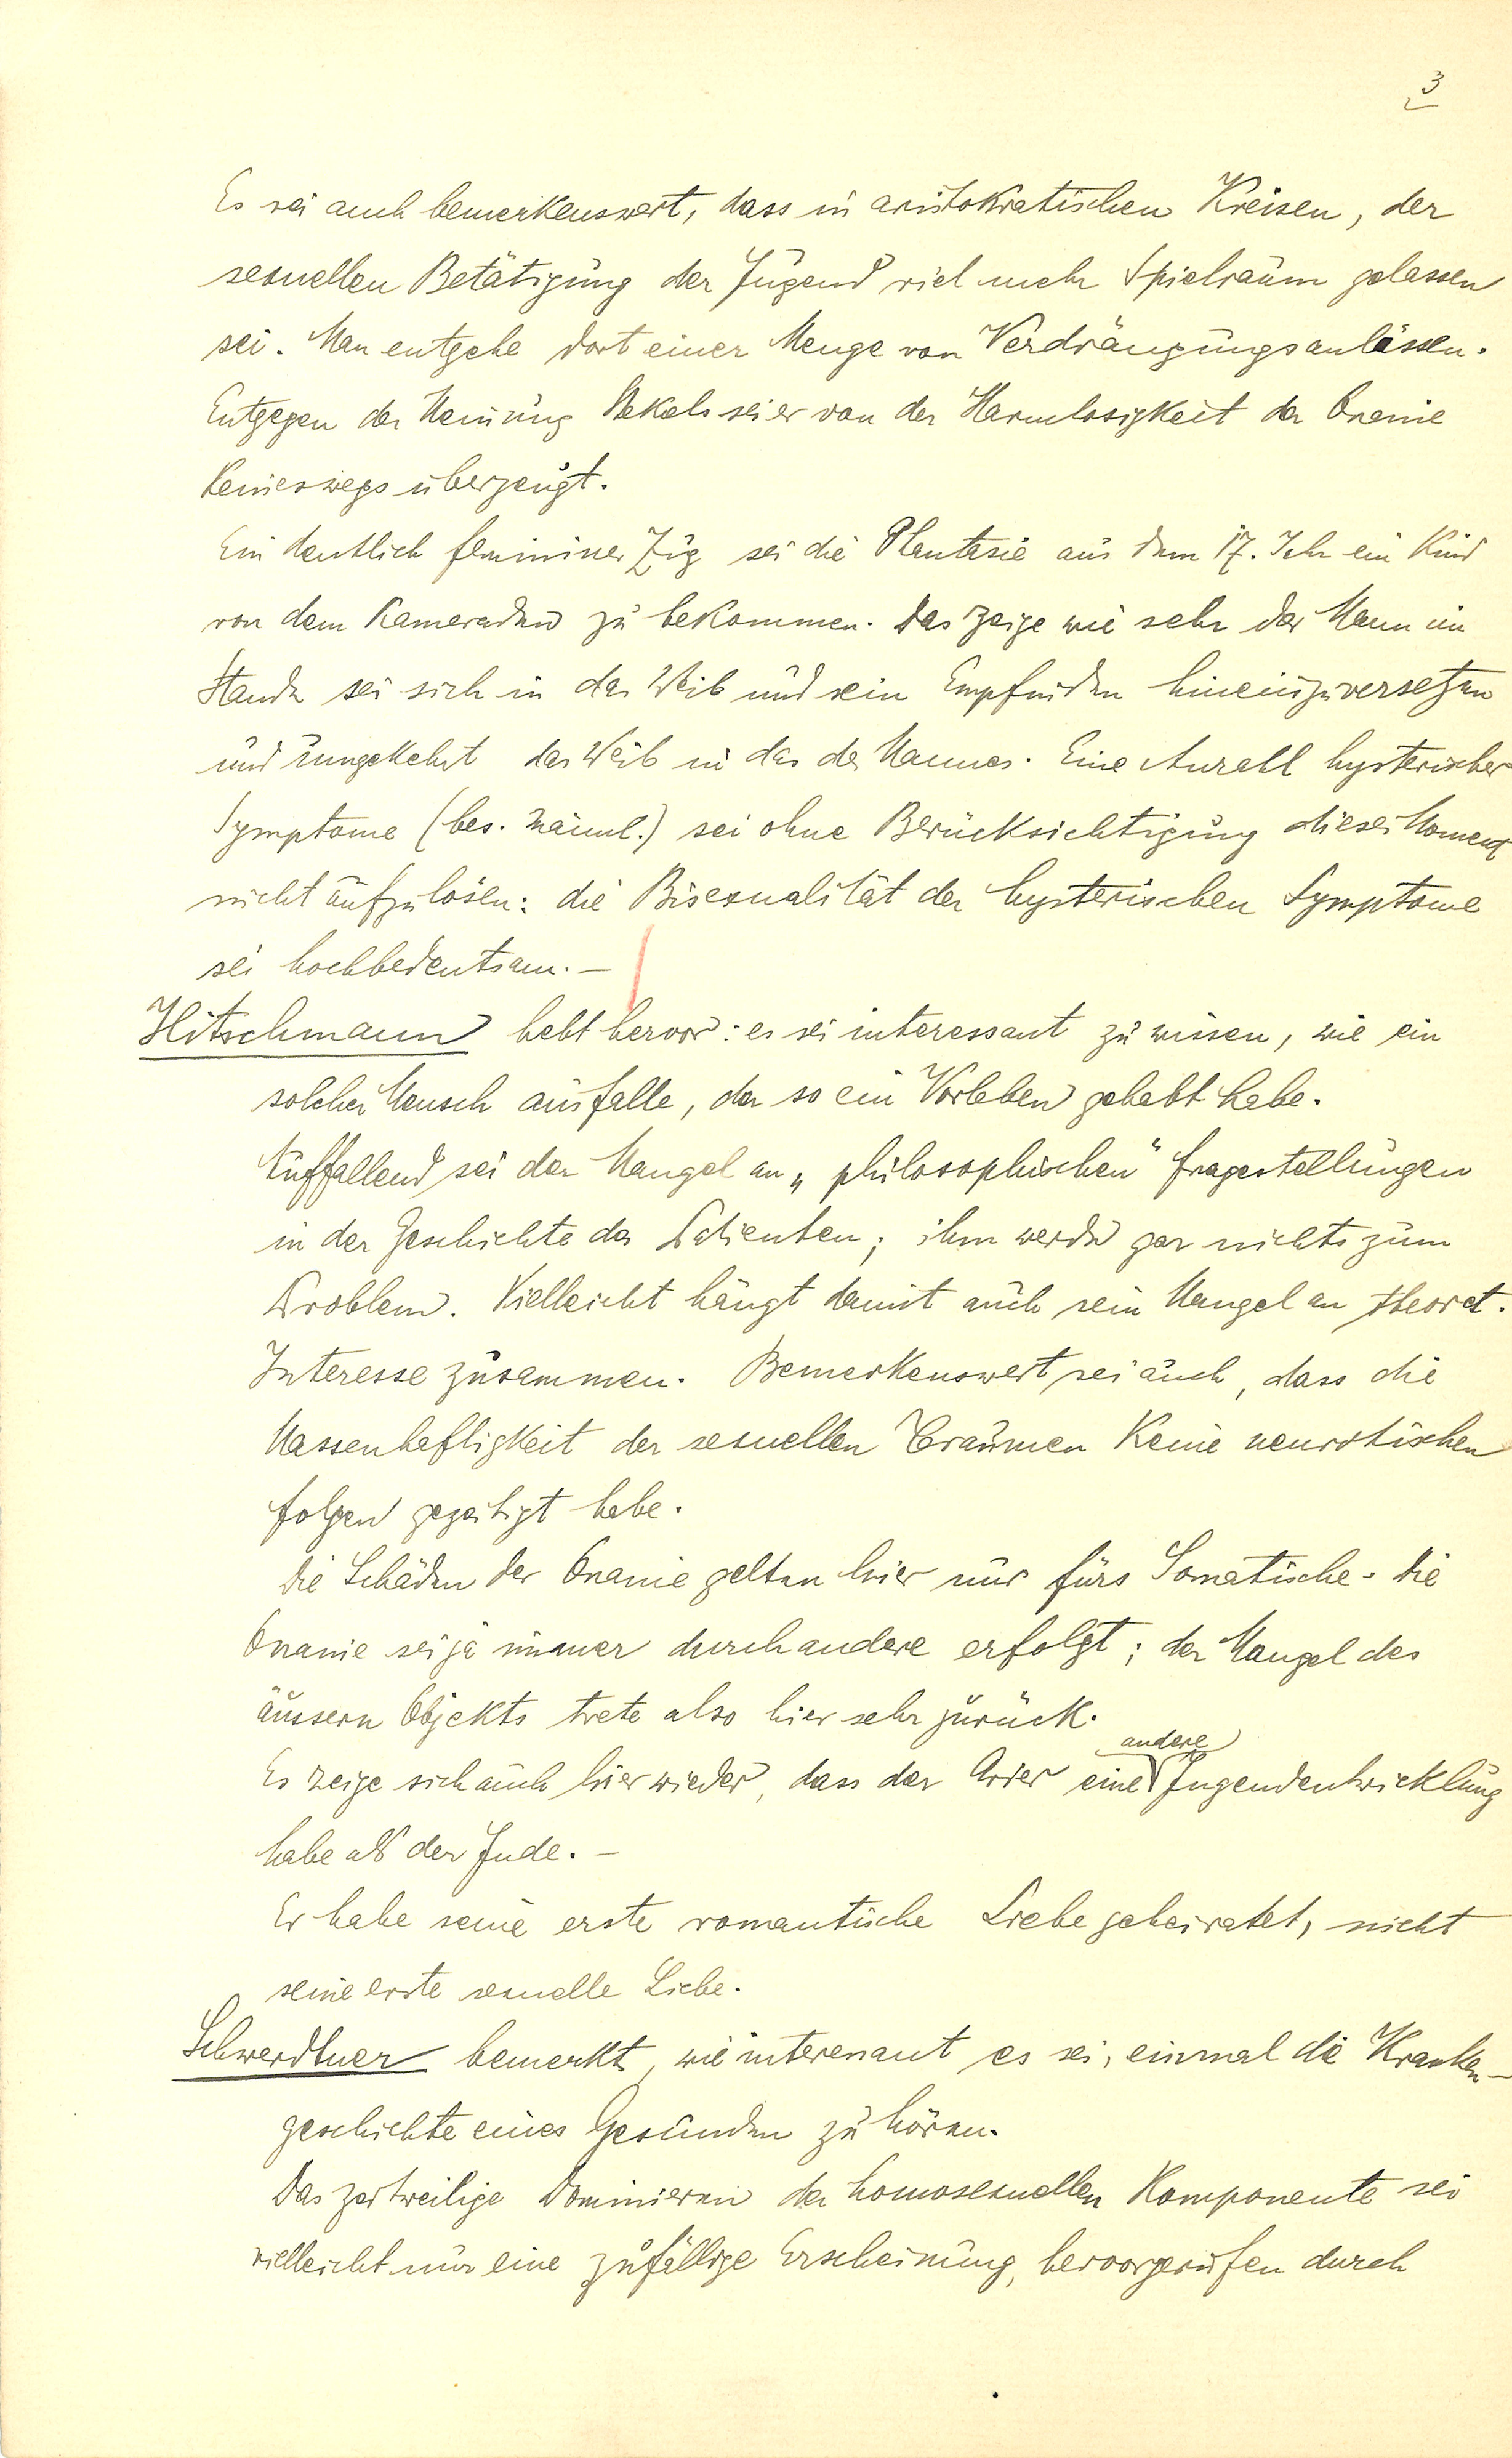 3
Es sei auch bemerkenswert, dass in aristokratischen Kreisen, der
sexuellen Betätigung der Jugend viel mehr Spielraum gelassen
sei. Man entgehe dort einer Menge von Verdrängungsanlässen.
Entgegen der Meinung Stekels sei er von der Harmlosigkeit der Onanie
keineswegs überzeugt.
Ein deutlich femininer Zug sei die Phantasie aus dem 17. Jahr ein Kind
von dem Kameraden zu bekommen. Das zeige wie sehr der Mann im
Stande sei sich in das Weib und sein Empfinden hineinzuversetzen
und umgekehrt das Weib in das des Mannes. Eine Anzahl hysterischer
Symptome (bes. männl.) sei ohne Berücksichtigung dieses Moments
nicht aufzulösen: die Bisexualität der hysterischen Symptome
sei hochbedeutsam. –
Hitschmann hebt hervor: es sei interessant zu wissen, wie ein
solcher Mensch ausfalle, der so ein Vorleben gehabt habe.
Auffallend sei der Mangel an „philosophischen" Fragestellungen
in der Geschichte des Patienten; ihm werde gar nichts zum
Problem. Vielleicht hängt damit auch sein Mangel an theoret.
Interesse zusammen. Bemerkenswert sei auch, dass die
Massenhaftigkeit der sexuellen Traumen keine neurotischen
Folgen gezeitigt habe.
Die Schäden der Onanie gelten hier nur fürs Somatische. Die
Onanie sei ja immer durch andere erfolgt; der Mangel des
äussern Objekts trete also hier sehr zurück.
Es zeige sich auch hier wieder, dass der Arier eine andere Jugendentwicklung
habe als der Jude. –
Er habe seine erste romantische Liebe geheiratet, nicht
seine erste sexuelle Liebe.
Schwerdtner bemerkt, wie interessant es sei, einmal die Kranken-
geschichte eines Gesunden zu hören.
Das zeitweilige Dominieren der homosexuellen Komponente sei
vielleicht nur eine zufällige Erscheinung, hervorgerufen durch